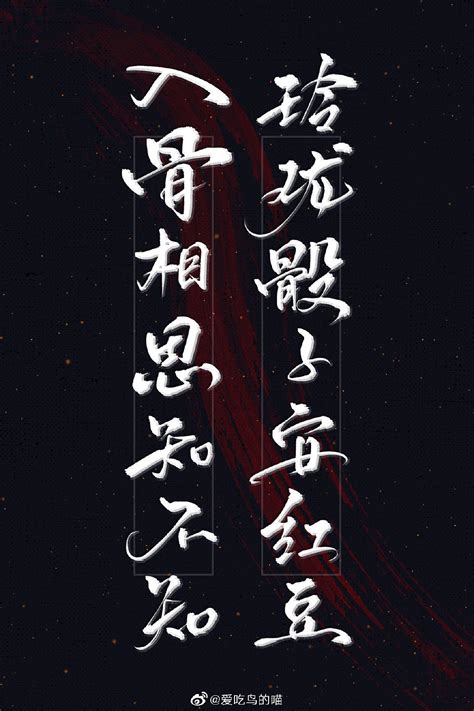 玲珑骰子安红豆
入骨相思知不知
@爱吃鸟的喵